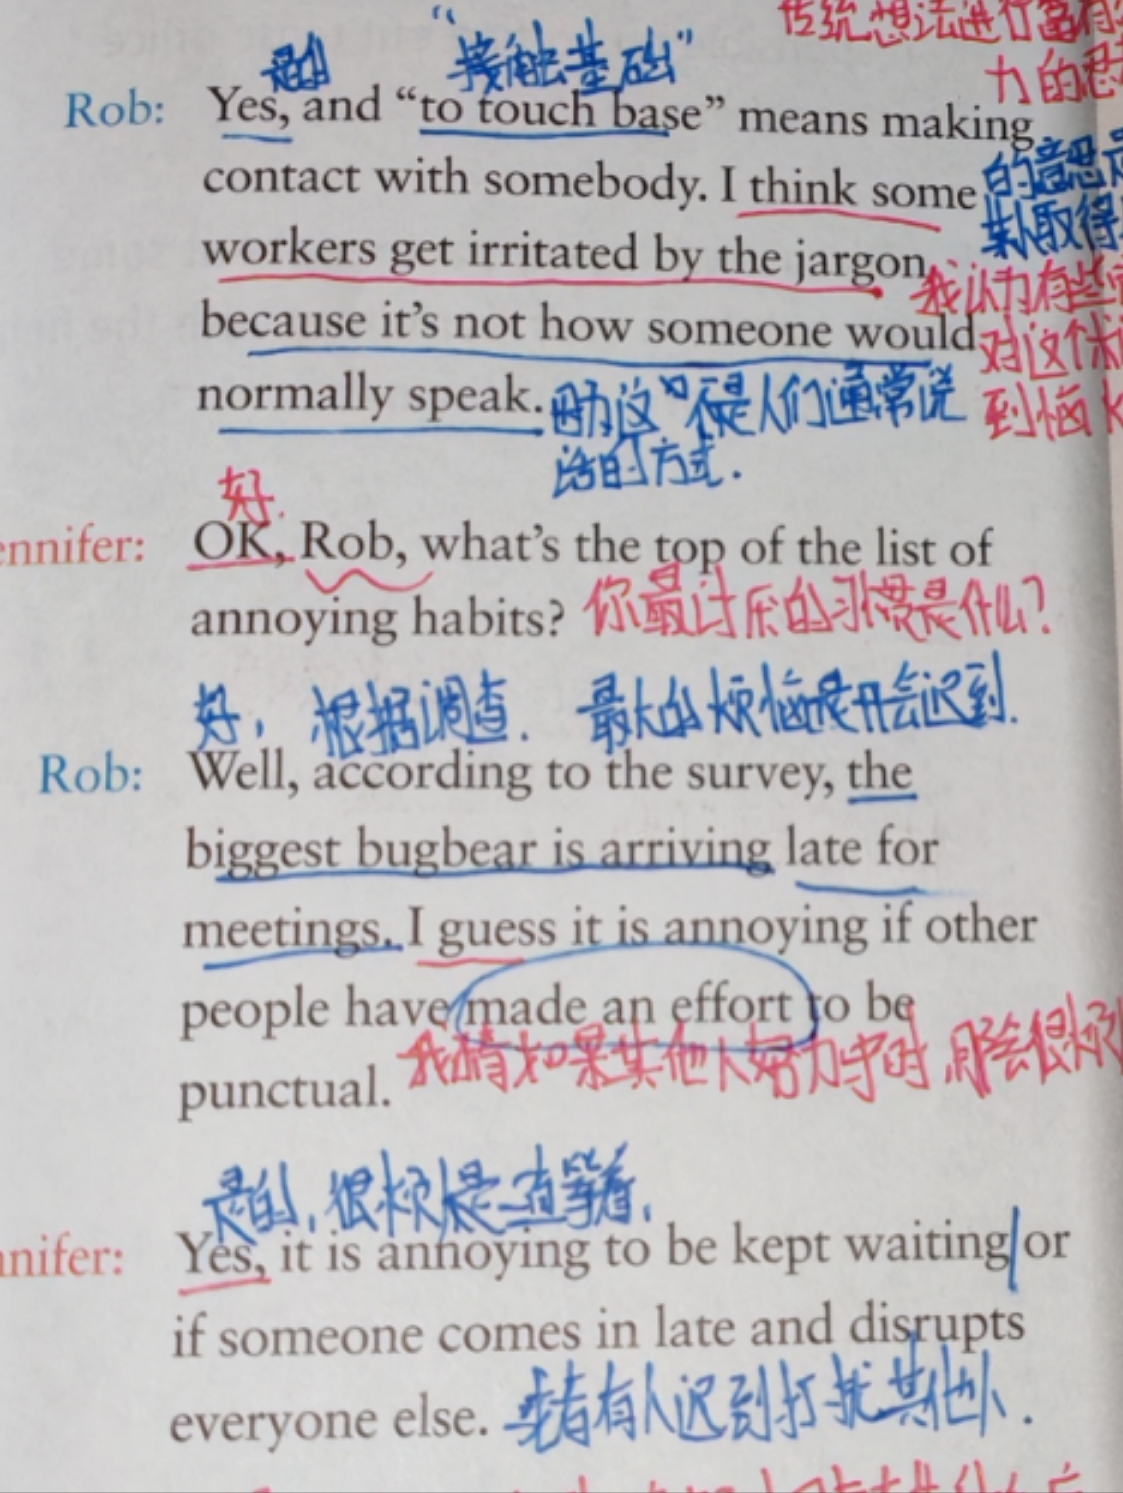 传统想法进行富有
是的 “接触基础”
力的
Rob: Yes, and “to touch base” means making
contact with somebody. I think some
的意思是
workers get irritated by the jargon,
某人取得
我认为有些
because it’s not how someone would
对这个
normally speak. 因为这不是人们通常说
到恼
话的方式.
好.
ennifer: OK, Rob, what’s the top of the list of
annoying habits? 你最讨厌的习惯是什么?
好, 根据调查. 最大的烦恼是开会迟到.
Rob: Well, according to the survey, the
biggest bugbear is arriving late for
meetings. I guess it is annoying if other
people have made an effort to be
punctual. 我猜如果其他人努力守时,那会很烦
是的, 很烦人是一直等着,
nnifer: Yes, it is annoying to be kept waiting or
if someone comes in late and disrupts
everyone else. 或者有人迟到打扰其他人.